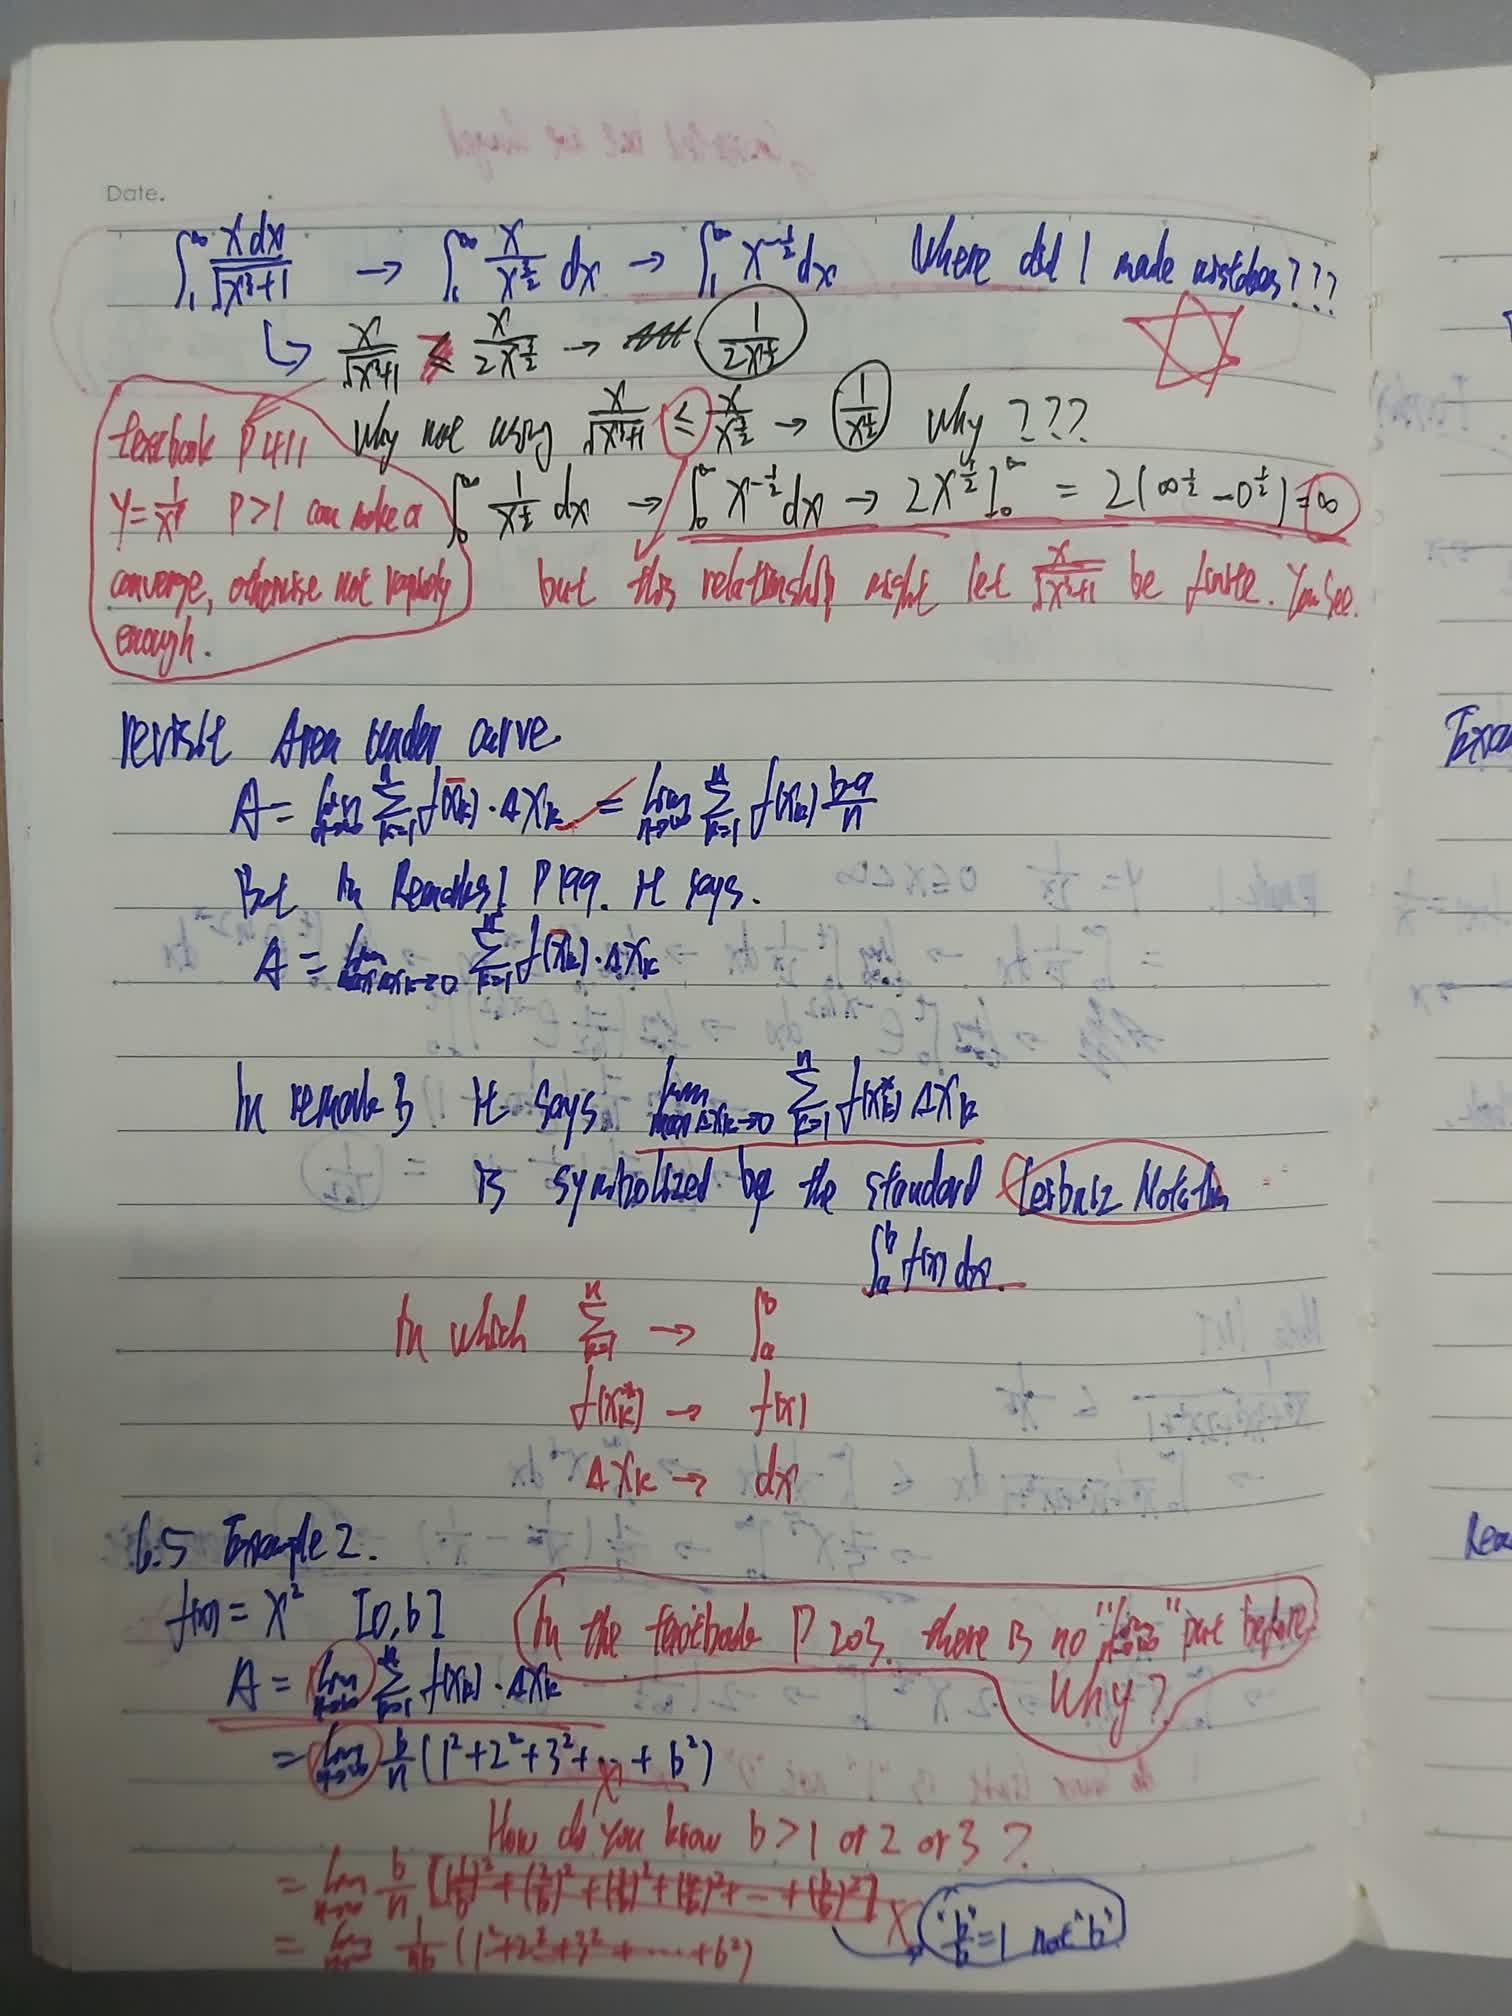 Date.
∫₁^∞ x dx/√(x³+1) → ∫₁^∞ x/x^(3/2) dx → ∫₁^∞ x^(-1/2) dx Where did I made mistakes???
↳ x/√(x³+1) ≤ x/2x^(3/2) → 1/2x^(1/2)
Why not using x/√(x³+1) ≤ x/x^(3/2) → 1/x^(1/2) why ???
textbook P411
y = 1/x^p P>1 can make a
converge, otherwise not rapidly
enough.
∫₀^∞ 1/x^(1/2) dx → ∫₀^∞ x^(-1/2) dx → 2x^(1/2)]₀^∞ = 2(∞^(1/2) - 0^(1/2)) = ∞
but this relationship might let x/√(x³+1) be finite. You see.
revisit Area under curve.
A = lim n→∞ Σ k=1 n f(x̄k)·Δxk = lim n→∞ Σ k=1 n f(xk) b-a/n
But in Remarks 1 P199. It says.
A = lim max Δxk→0 Σ k=1 n f(x̄k)·Δxk
In remark 3 It says lim max Δxk→0 Σ k=1 n f(xk*) Δxk
is symbolized by the standard Leibniz Notation
∫ₐᵇ f(x) dx.
In which Σ k=1 n → ∫ₐᵇ
f(xk*) → f(x)
Δxk → dx
6.5 Example 2.
f(x) = x² [0, b]
In the textbook P 203. there is no "lim n→∞" part before
Why?
A = lim n→∞ Σ k=1 n f(xk)·Δxk
= lim n→∞ b/n (1²+2²+3²+...+b²)
X
How do you know b>1 or 2 or 3 ?
= lim n→∞ b/n [(1/b)²+(2/b)²+(3/b)²+(4/b)²+...+(b/b)²] X
"b/b"=1 not "b"
= lim n→∞ 1/nb (1²+2²+3²+......+b²)